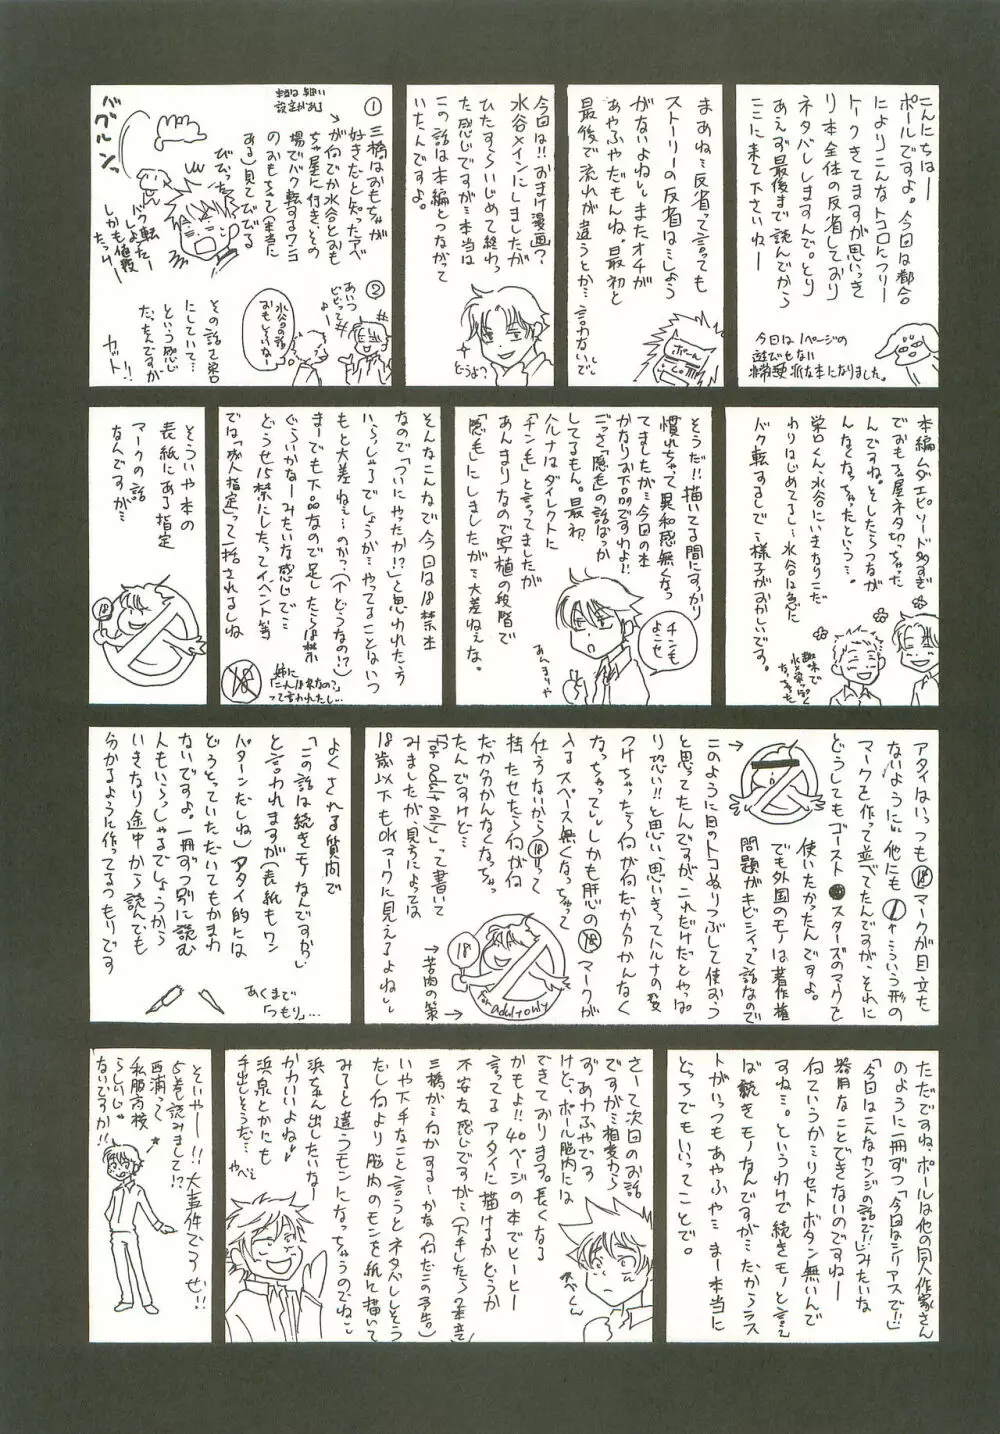 こんにちはー
ポールですよ。今回は都合
によりこんなトコロにフリー
トークきてますが思いっき
り本全体の反省しており
ネタバレしますんで。とり
あえず最後まで読んでから
ここに来て下さいねー
今回は1ページの
遊びもない
硬派な本になりました。
まあね…反省って言っても
ストーリーの反省は…しよう
がないよねぃ。またオチが
あやふやだもんね。最初と
最後で流れが違うとか…言わないでぃ
ポール
今回は!!おまけ漫画?
水谷メインにしましたが
ひたすらいじめて終わっ
た感じですが…本当は
この話は本編とつながって
いたんですよ。
どうよ?
①
三橋はおもちゃが
好きだと知った阿べ
が何でか水谷とおも
ちゃ屋に行き、その
場でバク転するワンコ
のおもちゃ(本当に
ある)見てびびる
びびっ
バク転したー
しかも値段
たっけー
②
あいつ
ビビってる
よー
水谷の話
おもしろいなー
その話で栄口
にしていて…
という感じ
だったんですが
カット!!
本編ムダエピソード多すぎ
でおもちゃ屋ネタ切っちゃった
んですね。としたらつながん
なくなっちゃったというっ…。
栄口くん、水谷にいきなりこだ
わりはじめてるし…水谷は急に
バク転するしで…様子がおかしいです。
そうだ!!描いてる間にすっかり
慣れちゃって異和感無くなっ
てましたが…今回の本
かなりお下品ですわよ!!
ごっさ「陰毛」の話ばっか
してるもん。最初、
ハルナはダイレクトに
「チン毛」と言ってましたが
あんまりなので写植の段階で
「陰毛」にしましたが…大差ねぇな。
チンも
よこせ
あんまりや
そんなこんなで今回は18禁本
なので「ついにやったか!?」と思われた方
いらっしゃるでしょうが…やってることはいつ
もと大差ねぇ…のか…(どうなの!?)
まーでも下品なので足したら18禁
ぐらいかなーみたいな感じで…
どうせ15禁にしたってイベント等
では「成人指定」って一括されるしね
姉に
「こんな18禁なの?」
って言われたし…
そういや本の
表紙にある指定
マークの話
なんですが…
18
アタイはいっつも⑱マークが目立た
ないように"他にもこういう形の
マークを作って並べてたんですが、それに
どうしてもゴースト●スターズのマークを
使いたかったんですよ。
でも外国のモノは著作権
問題がキビシイって話なので
このように目のトコぬりつぶして使おう
と思ってたんですが、これだけだとやっぱ
り恐い!!と思い、思いきってハルナの髪
つけちゃったら何が何だか分かんなく
なっちゃってぃ。しかも肝心の⑱マークが
入るスペース無くなっちゃって
仕方ないから⑱って
持たせたら何が何
だか分かんなくなっちゃっ
たんですけど…
「for adult only」って書いて
みましたが、見方によっては
18歳以下もOKマークに見えるよねぃ
for adult only
→苦肉の策→
よくされる質問で
「この話は続きモノなんですか」
と言われますが(表紙もワン
パターンだしね)アタイ的には
どうとっていただいてもかまわ
ないですよ。一冊ずつ別に読む
人もいらっしゃるでしょうから
いきなり途中から読んでも
分かるように作ってるつもりです
あくまで
「つもり」…
ただですね、ポールは他の同人作家さん
のように一冊ずつ「今日はシリアスで!!」
「今日はこんなカンジの話で!!」みたいな
器用なことできないのですねー
何ていうか…リセットボタン無いんで
すね…。というわけで続きモノと言え
ば続きモノなんですが…だからラス
トがいつもあやふや…ま、本当に
どっちでもいいってことで。
さーて次回のお話
ですが…相変わら
ずあわふやです
けど、ポール脳内には
できております。長くなる
かもよ!!40ページの本でヒーヒー
言ってるアタイに描けるかどうか
不安な感じですが…(下手したら2本立)
三橋が…何かする…かな(何だこの予告。)
いや下手なこと言うとネタバレしそう
だし何より脳内のモンを紙に描いて
みると違うモンになっちゃうのでねぃ
浜ちゃん出したいなー
かわいいよね♪
浜泉とかにも
手出しそうだ…
やべぇ
そいやー!!大事件でっせ!!
5巻読みました!?
西浦って
私服高校
らしいじゃ
ないですか!!